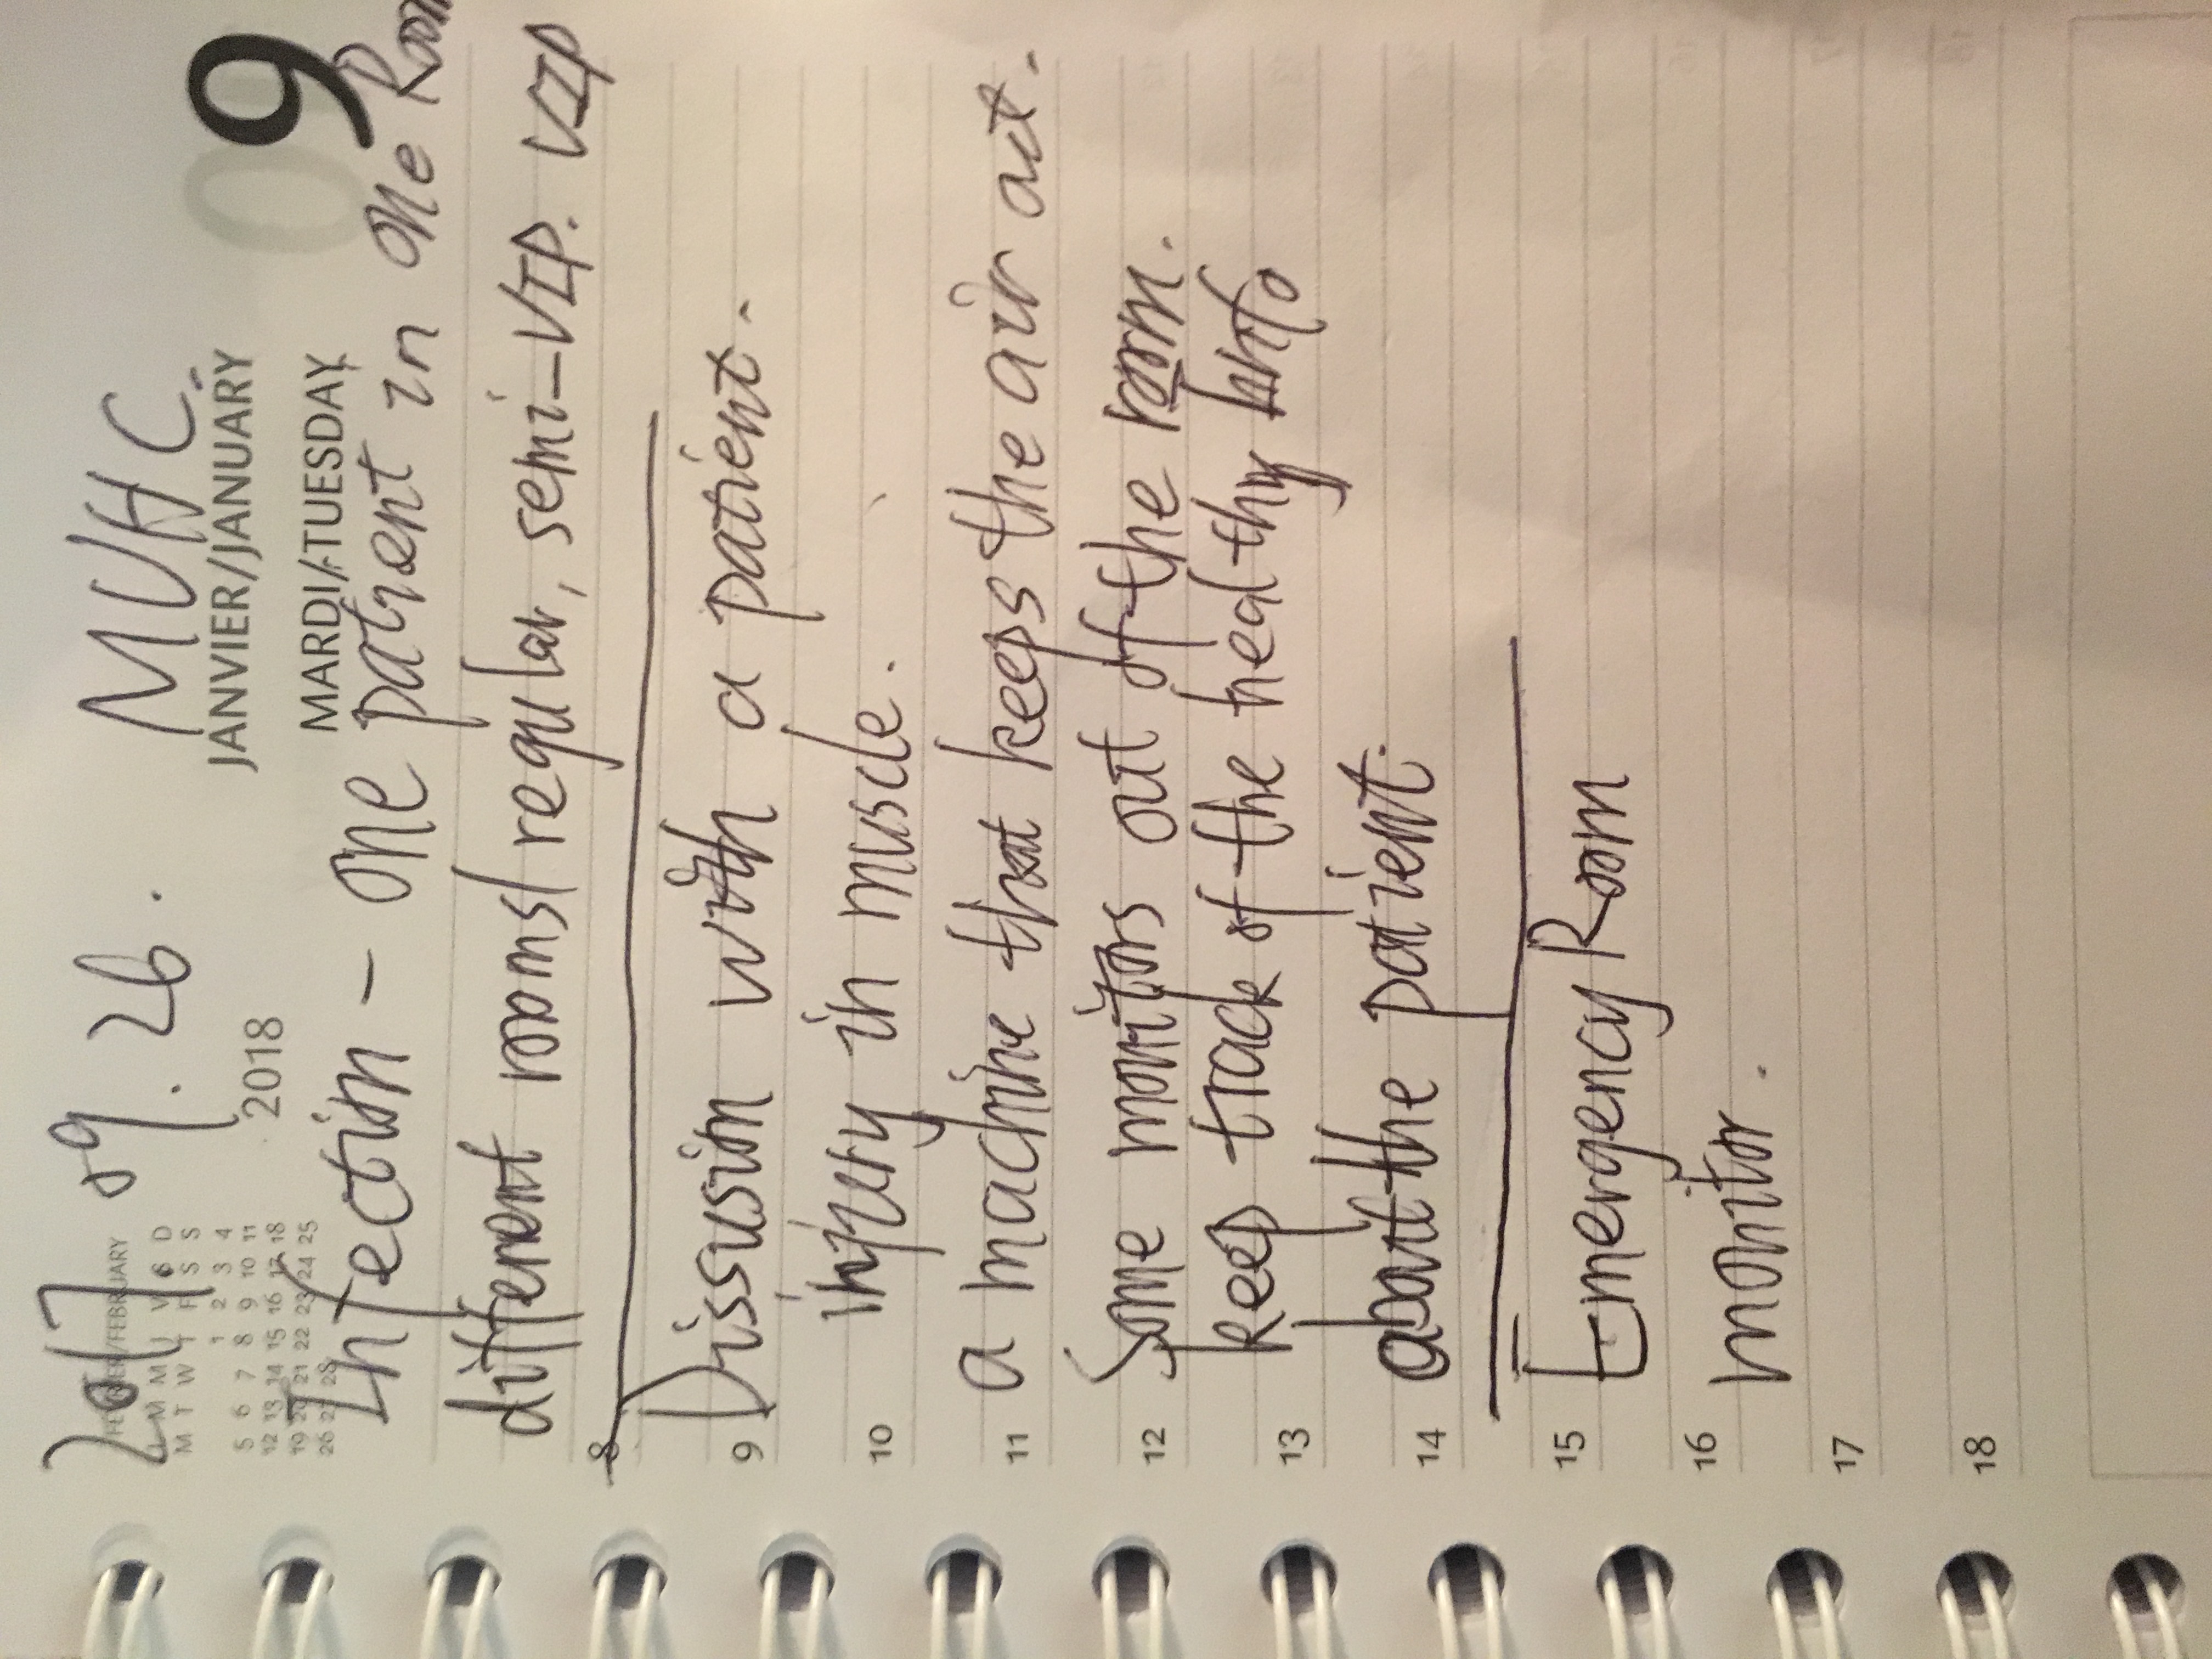 2017. 09. 26. MUHC.
FÉVRIER/FEBRUARY
L M M J V S D
M T W T F S S
1 2 3 4
5 6 7 8 9 10 11
12 13 14 15 16 17 18
19 20 21 22 23 24 25
26 27 28
2018
JANVIER/JANUARY
MARDI/TUESDAY
09
Infection - one patient in one Room
different rooms/ regular, semi-VIP. VIP
8
9 Dissusion with a patient.
10 injury in muscle.
11 a machine that keeps the air out.
12 Some monitors out of the room.
13 keep track of the healthy info
14 about the patient.
15 Emergency Room
16 monitor.
17
18